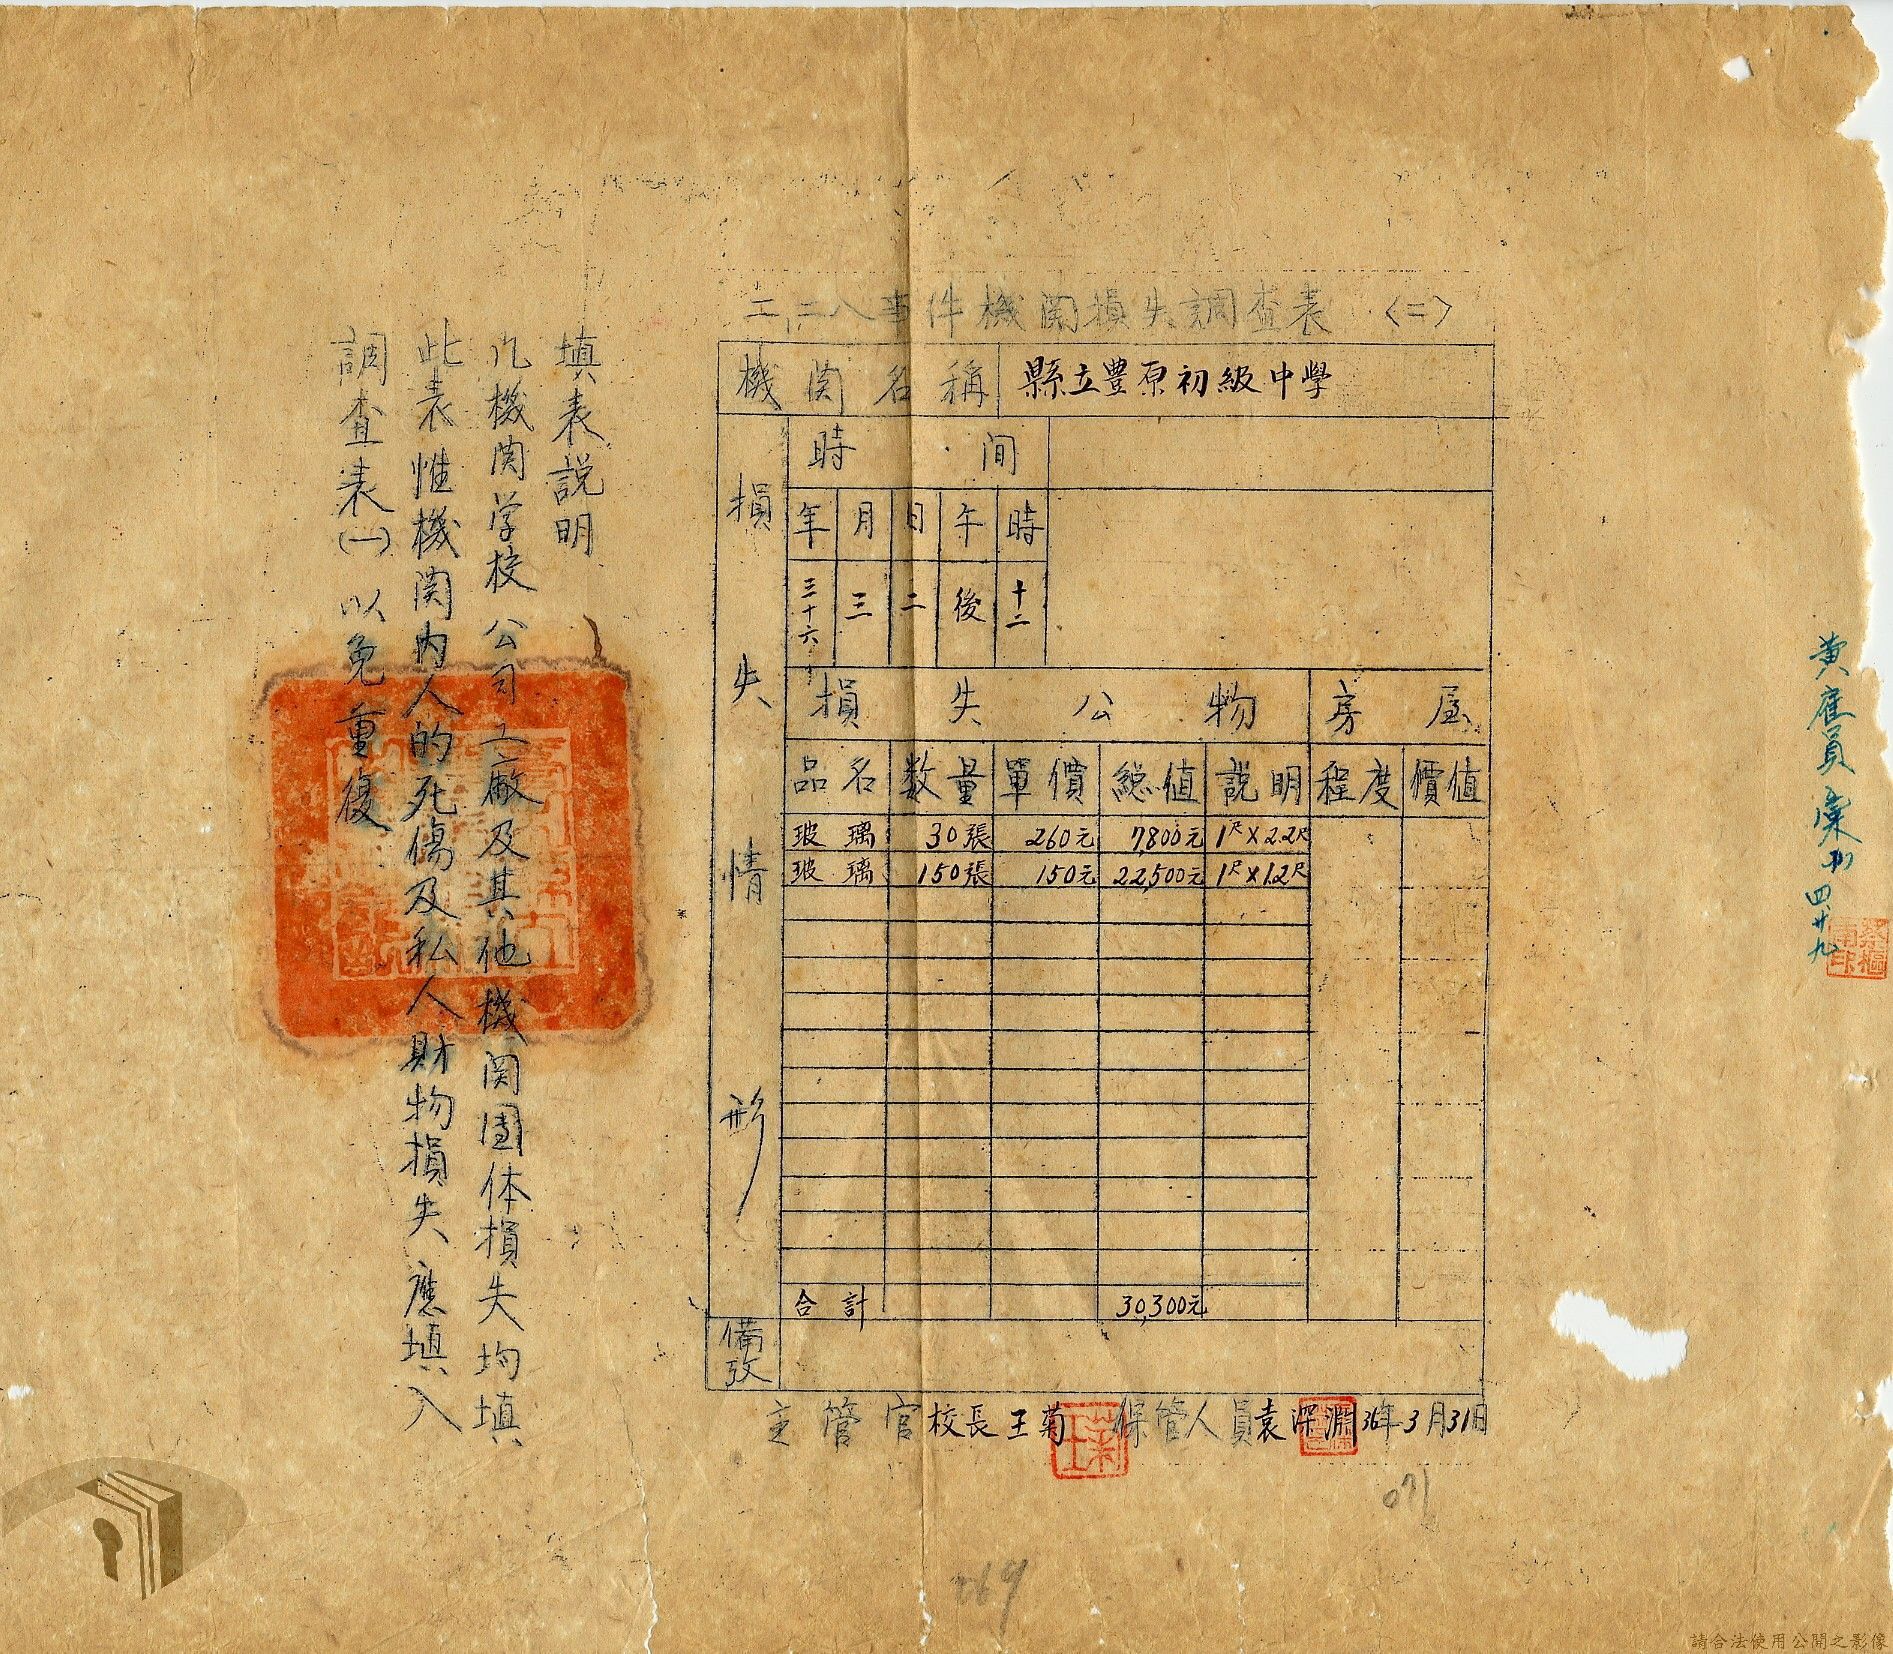 二,二八事件機関損失調查表 <二>
機関名稱 縣立豊原初級中學
損失情形
時間
年 月 日 午 時
三十六 三 二 後 十二
損失公物 房屋
品名 数量 單價 總值 説明 程度 價值
玻璃 30張 260元 7,800元 1尺×2.2尺
玻璃 150張 150元 22,500元 1尺×1.2尺
合計 30,300元
備攷
主管官 校長王菊 保管人員 袁深淵 36年3月31日
填表説明
凡機関学校公司工廠及其他機関團体損失均填
此表惟機関内人的死傷及私人財物損失應填入
調查表(一)以免重復
黄雇員
四、廿九
071
069
請合法使用公開之影像